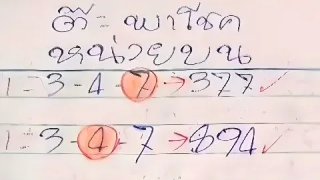 ต๊ะ พาโชค
หน่วยบน
1 = 3-4-7 → 377 ✓
1 = 3-4-7 → 894 ✓